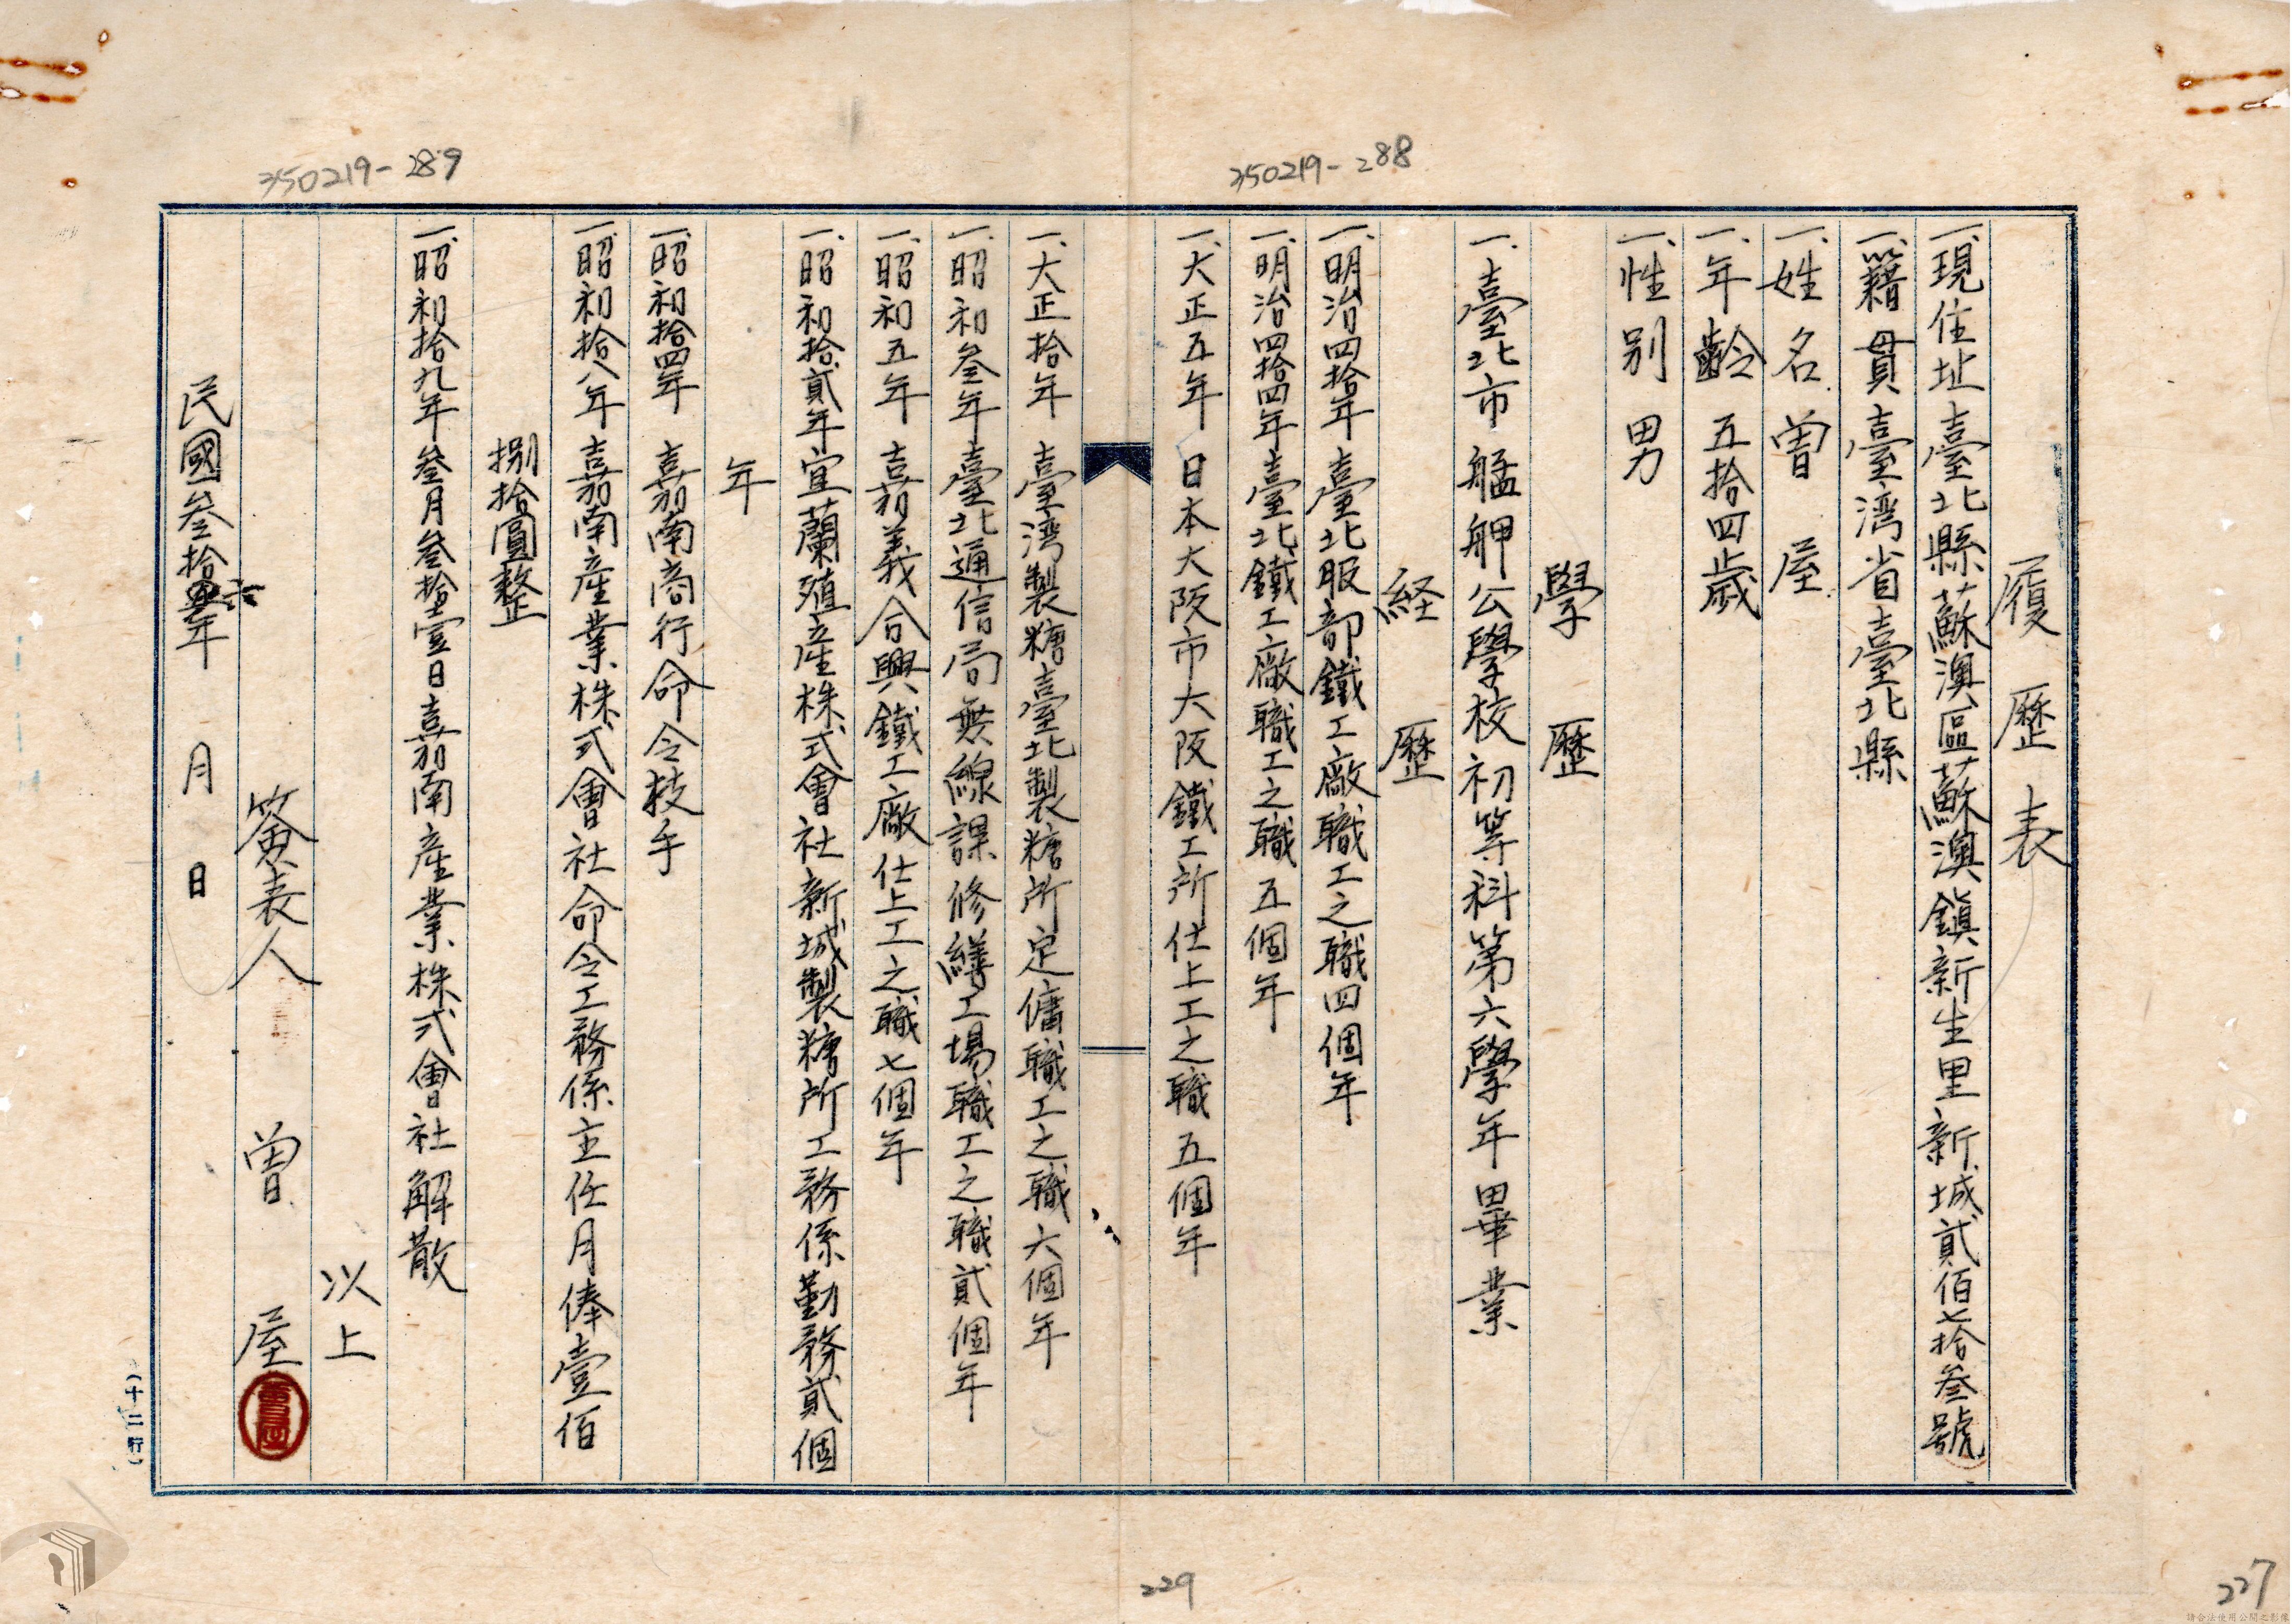 350219-288
350219-289
履歷表
一、現住址 臺北縣蘇澳區蘇澳鎮新生里新城貳佰七拾叁號
一、籍貫 臺湾省臺北縣
一、姓名 曾屋
一、年齡 五拾四歲
一、性別 男
學歷
一、臺北市艋舺公學校初等科第六學年畢業
経歷
一、明治四拾年 臺北服部鐵工廠職工之職四個年
一、明治四拾四年 臺北鐵工廠職工之職五個年
一、大正五年 日本大阪市大阪鐵工所仕上工之職五個年
一、大正拾年 臺湾製糖臺北製糖所定傭職工之職六個年
一、昭和叁年 臺北逓信局無線課修繕工場職工之職貳個年
一、昭和五年 嘉義合興鐵工廠仕上工之職七個年
一、昭和拾貳年 宜蘭殖産株式會社新城製糖所工務係勤務貳個
年
一、昭和拾四年 嘉南商行命令技手
一、昭和拾八年 嘉南産業株式會社命令工務係主任月俸壹佰
捌拾圓整
一、昭和拾九年叁月叁拾壹日嘉南産業株式會社解散
以上
簽表人 曾屋
民國叁拾六年 月 日
(十二行)
229
227
請合法使用公開之影像